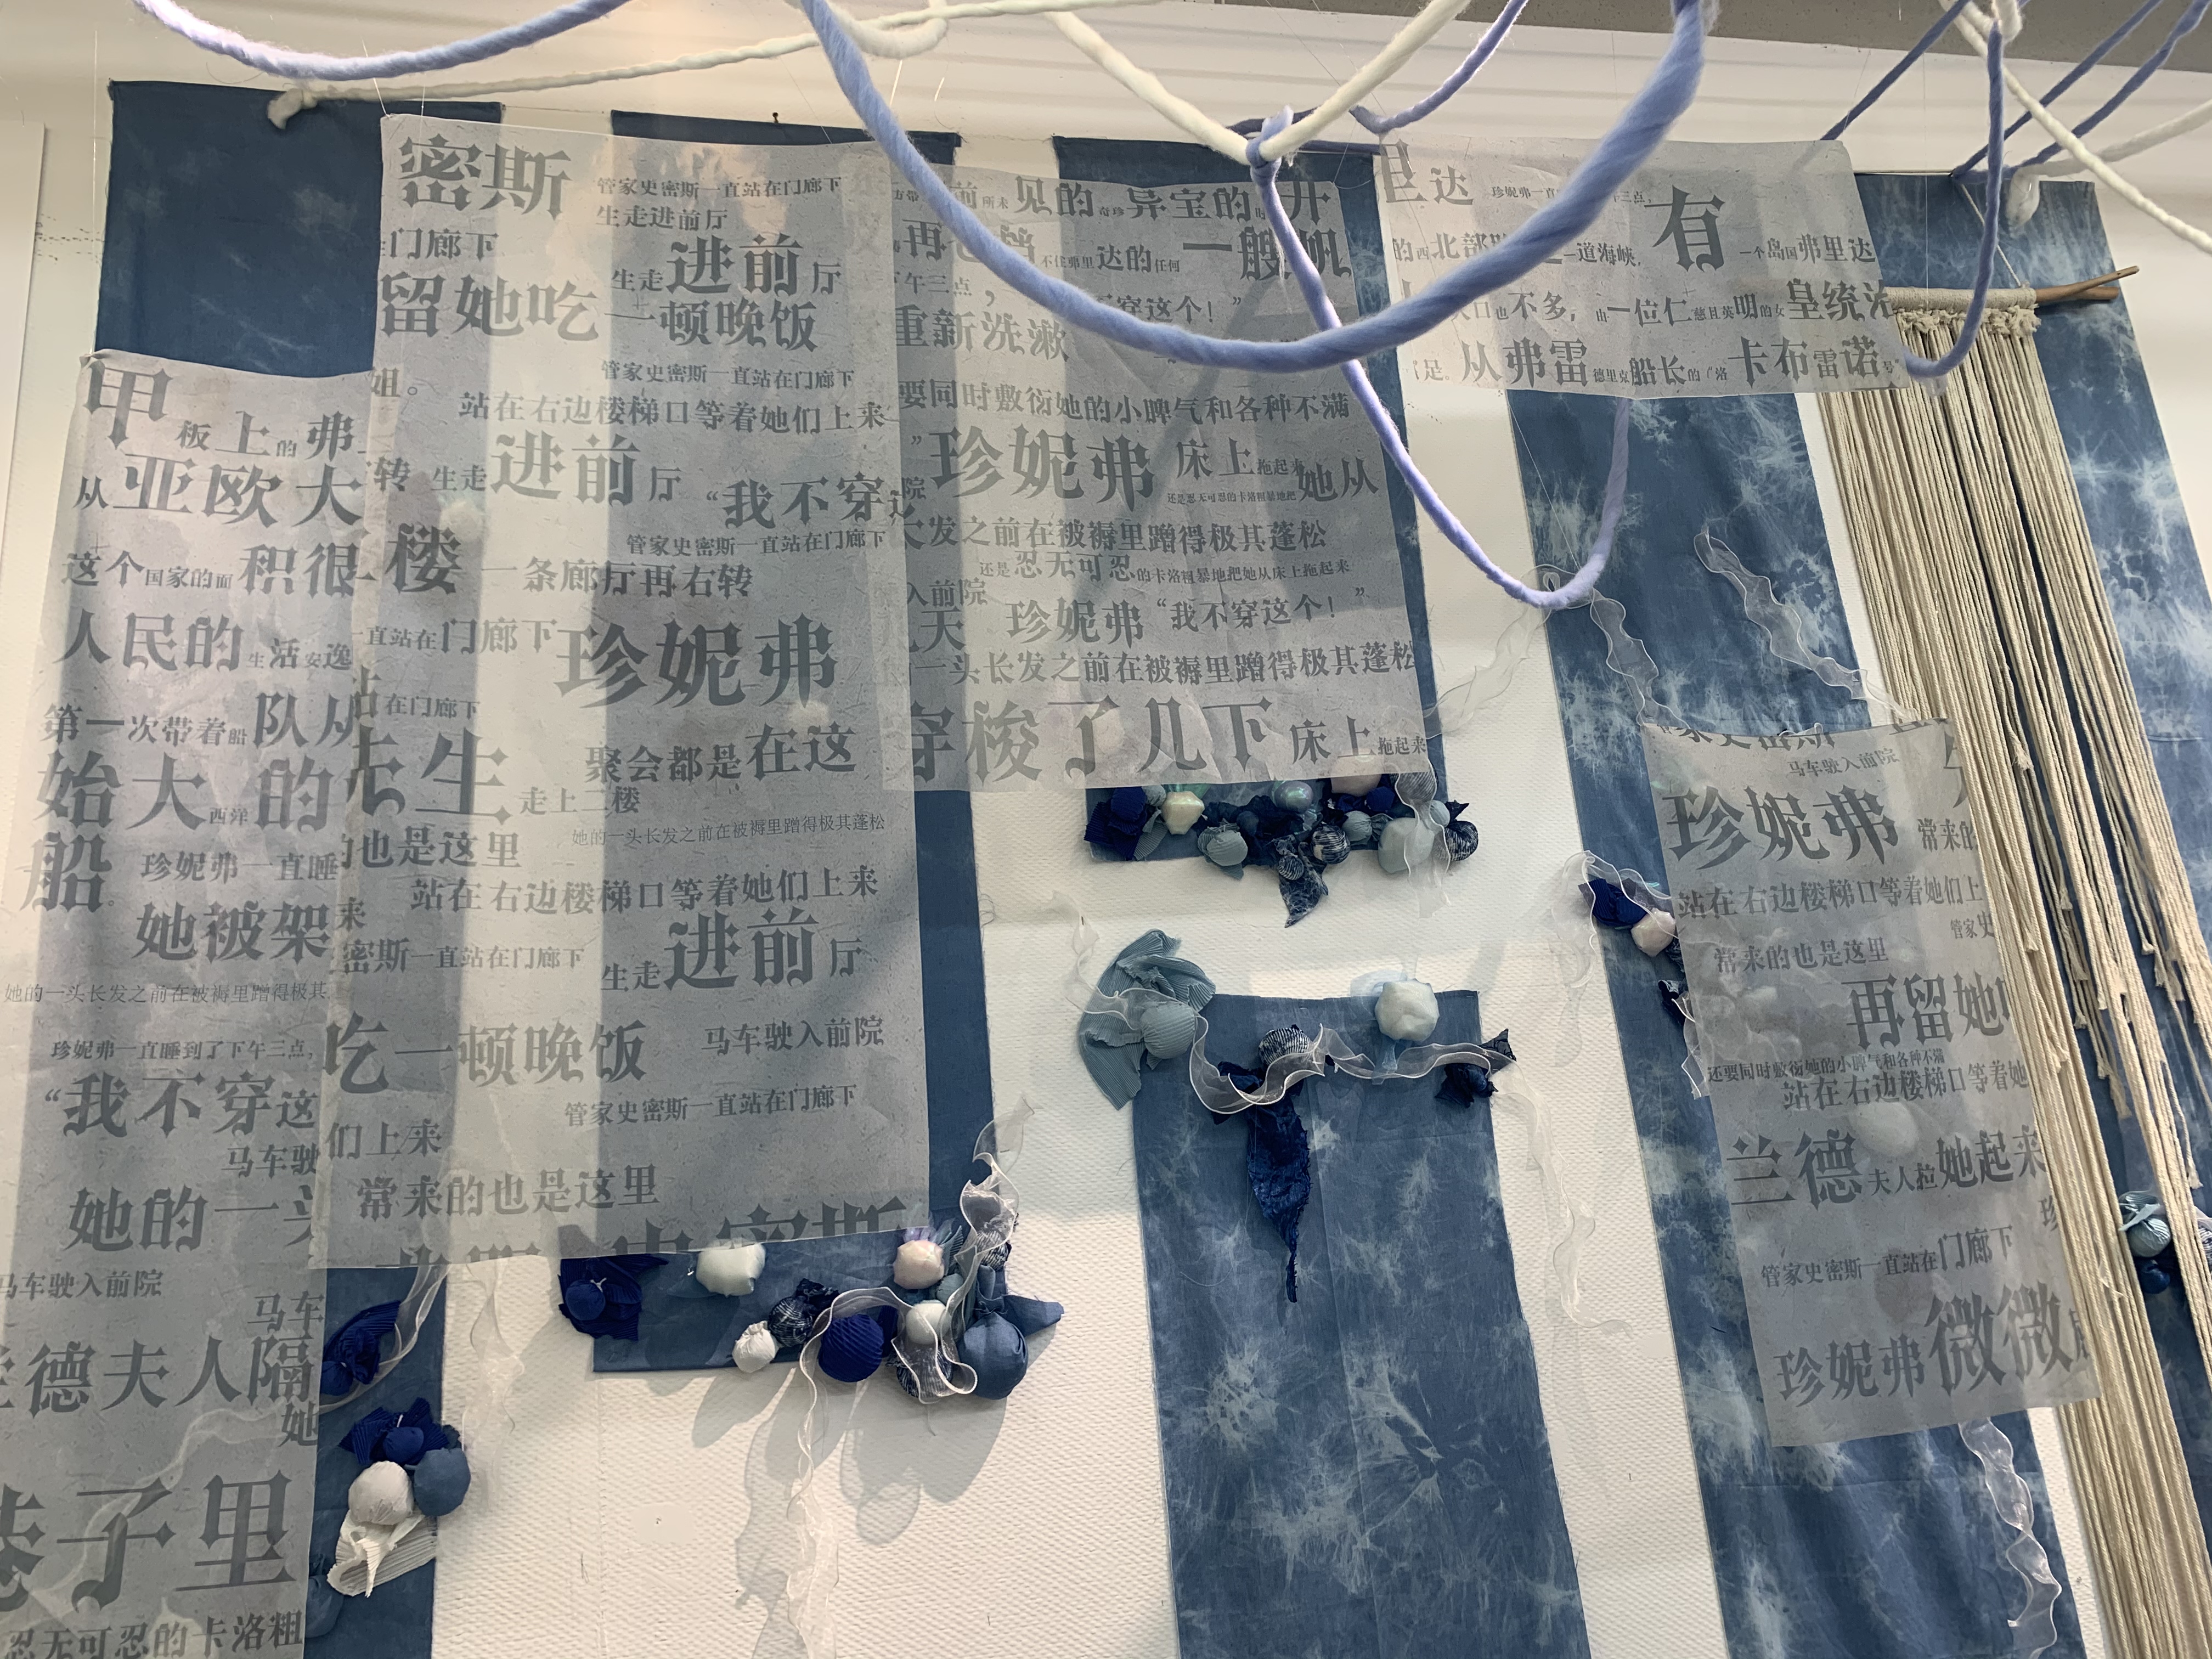 密斯 管家史密斯一直站在门廊下
生走进前厅
门廊下
生走进前厅
留她吃一顿晚饭
管家史密斯一直站在门廊下
姐。
站在右边楼梯口等着她们上来
转 生走进前厅
“我不穿
管家史密斯一直站在门廊下
楼一条廊厅再右转
一直站在门廊下
珍妮弗
在门廊下
聚会都是在这
生走上二楼
她的一头长发之前在被褥里蹭得极其蓬松
的也是这里
站在右边楼梯口等着她们上来
来 生走进前厅
密斯一直站在门廊下
吃一顿晚饭 马车驶入前院
管家史密斯一直站在门廊下
们上来
常来的也是这里
史密斯
甲板上的弗
从亚欧大
这个国家的面积很
人民的生活安逸
第一次带着船队从
始大西洋的
船 珍妮弗一直睡
她被架
她的一头长发之前在被褥里蹭得极其
珍妮弗一直睡到了下午三点，
“我不穿这
马车驶
她的一头
马车驶入前院
马车
兰德夫人隔
她
巷子里
忍无可忍的卡洛粗
前所未见的奇珍异宝的时
再也
不住弗里达的任何一艘帆
午三点，
穿这个！”
重新洗漱
要同时敷衍她的小脾气和各种不满
”珍妮弗 床上拖起来
还是忍无可忍的卡洛粗暴地把她从
院
发之前在被褥里蹭得极其蓬松
还是忍无可忍的卡洛粗暴地把她从床上拖起来
入前院
天 珍妮弗“我不穿这个！”
一头长发之前在被褥里蹭得极其蓬松
穿梭了几下床上拖起来
里达 珍妮弗一直
三点，
的西北部
一道海峡，有一个岛国弗里达
口也不多，由一位仁慈且英明的女皇统治
足。从弗雷德里克船长的“洛卡布雷诺号
家史密斯
马车驶入前院
珍妮弗 常来的
站在右边楼梯口等着她们上
管家史
常来的也是这里
再留她
还要同时敷衍她的小脾气和各种不满
站在右边楼梯口等着她
兰德夫人拉她起来
珍
管家史密斯一直站在门廊下
珍妮弗微微